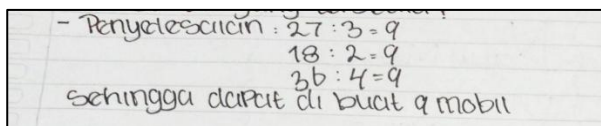 - Penyelesaian : 27 : 3 = 9
18 : 2 = 9
36 : 4 = 9
sehingga dapat di buat 9 mobil